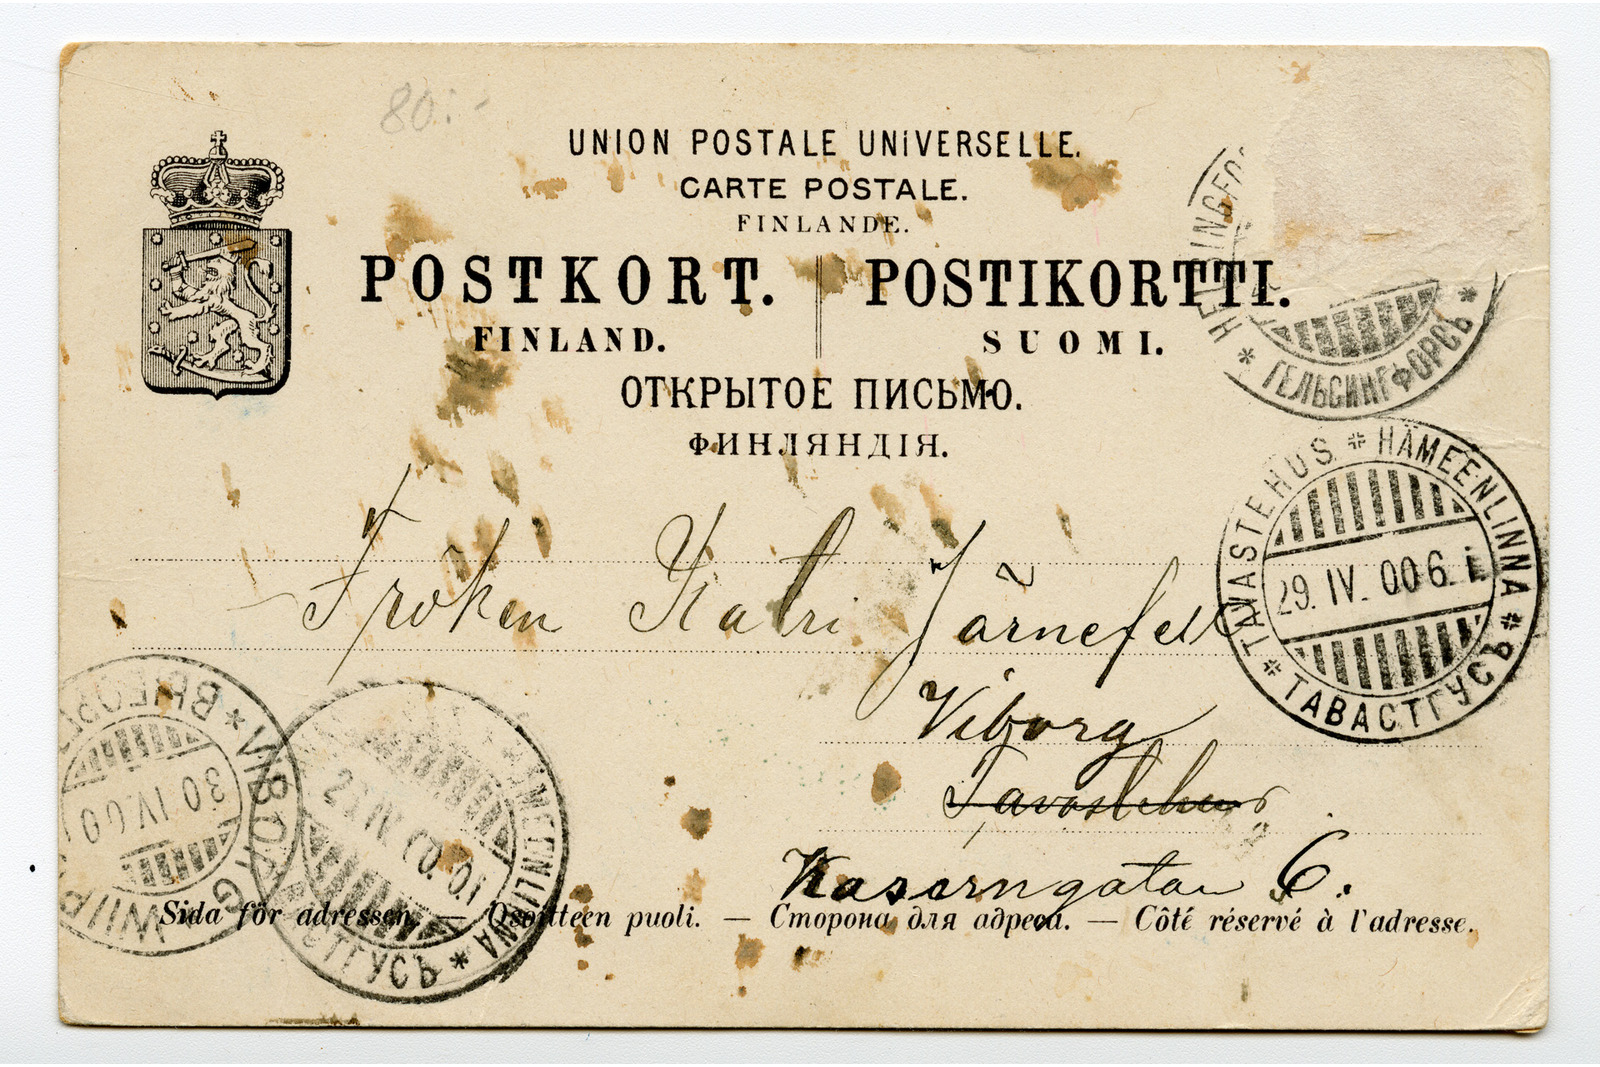 80:-
UNION POSTALE UNIVERSELLE.
CARTE POSTALE.
FINLANDE.
POSTKORT. POSTIKORTTI.
FINLAND. SUOMI.
ОТКРЫТОЕ ПИСЬМО.
ФИНЛЯНДІЯ.
* ГЕЛЬСИНГФОРСЪ *
TAVASTEHUS * HÄMEENLINNA * ТАВАСТГУСЪ *
29. IV. 00 6. i.
Fröken Katri Järnefelt
Viborg
Tavastehus
Kaserngatan 6.
30 IV. 00
Sida för adressen. — Osoitteen puoli. — Сторона для адреса. — Côté réservé à l'adresse.